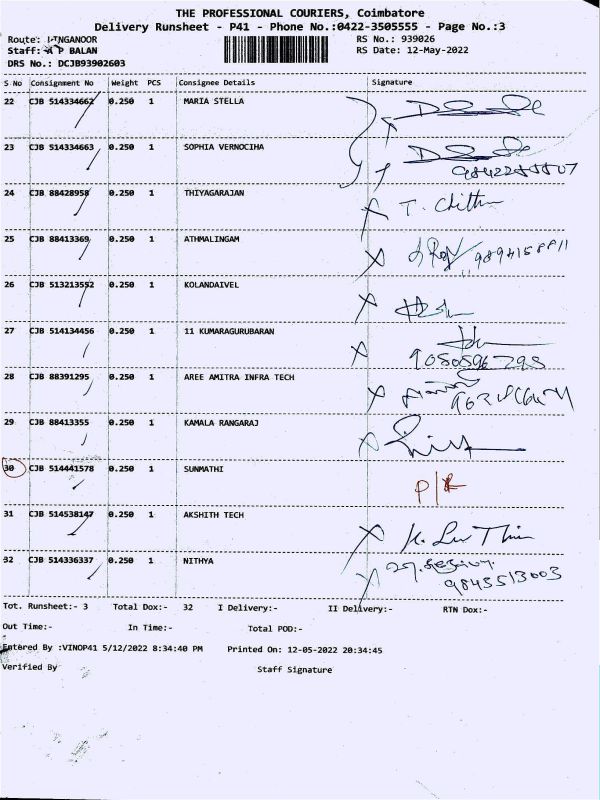 THE PROFESSIONAL COURIERS, Coimbatore
Delivery Runsheet - P41 - Phone No.:0422-3505555 - Page No.:3
Route: INGANOOR RS No.: 939026
Staff: A P BALAN RS Date: 12-May-2022
DRS No.: DCJB93902603
S No Consignment No Weight PCS Consignee Details Signature
22 CJB 514334662 0.250 1 MARIA STELLA
23 CJB 514334663 0.250 1 SOPHIA VERNOCIHA
24 CJB 88428958 0.250 1 THIYAGARAJAN T.
25 CJB 88413369 0.250 1 ATHMALINGAM
26 CJB 513213552 0.250 1 KOLANDAIVEL
27 CJB 514134456 0.250 1 11 KUMARAGURUBARAN
9050596298
28 CJB 88391295 0.250 1 AREE AMITRA INFRA TECH
29 CJB 88413355 0.250 1 KAMALA RANGARAJ
30 CJB 514441578 0.250 1 SUNMATHI
31 CJB 514538147 0.250 1 AKSHITH TECH
32 CJB 514336337 0.250 1 NITHYA
9843513003
Tot. Runsheet:- 3 Total Dox:- 32 I Delivery:- II Delivery:- RTN Dox:-
Out Time:- In Time:- Total POD:-
Entered By :VINOP41 5/12/2022 8:34:40 PM Printed On: 12-05-2022 20:34:45
Verified By Staff Signature